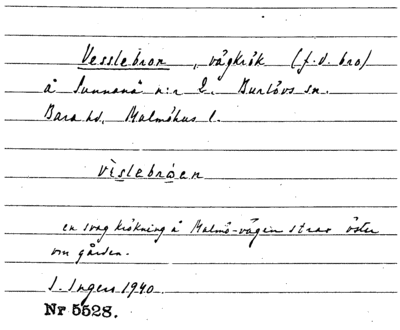 Vesslebron, vägkrök (f.d. bro)
å Sunnanå n:r 2. Burlövs sn.
Bara hd, Malmöhus l.
vislebroen
en svag krökning å Malmö-vägen strax öster
om gården.
S. Ingers 1940.
Nr 5528.